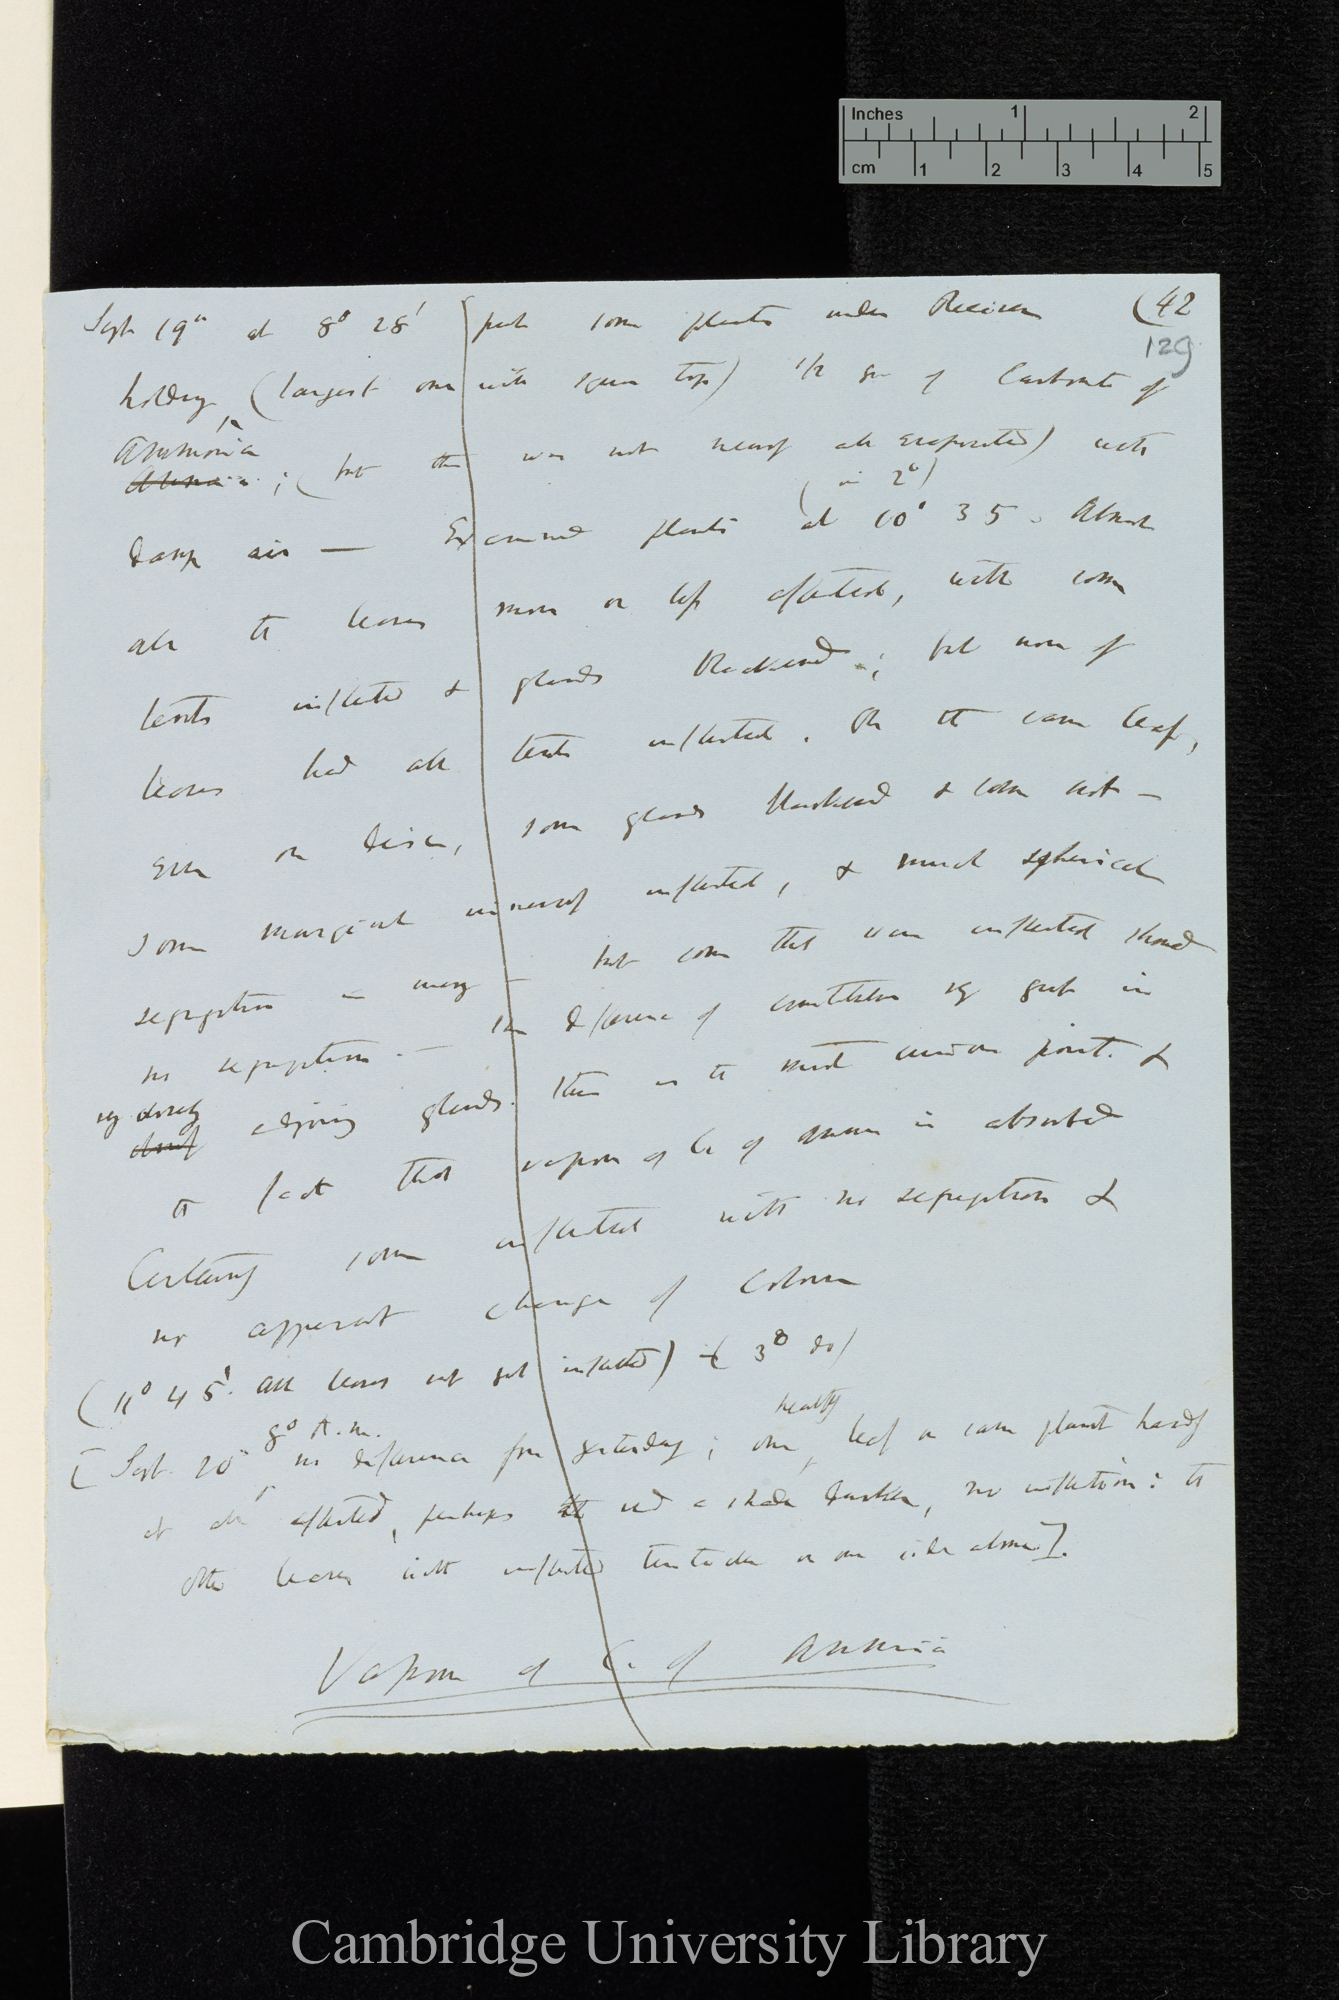 Inches 1 2
cm 1 2 3 4 5
(42
129
Sept 19th at 8° 28' put some plants under Receiver
holding (largest one with square top) 1/2 gr of Carbonate of
Ammonia
; (but this was not nearly all evaporated) with
(in 2°)
damp air — Examined plants at 10° 35'. Almost
all the leaves more or less affected, with some
tents inflected & glands blackened; but none of
leaves had all tents inflected. On the same leaf,
even on disc, some glands blackened & some not —
some marginal inflected, & much spherical
segregation in many — but some that were inflected showed
no segregation. — This difference of constitution very great in
very closely
adjoining glands. This is the most curious point. &
the fact that vapour of C. of Ammonia is absorbed
Certainly some inflected with no segregation &
no apparent change of Colour
(11° 45'. All leaves not inflected) (3° do)
8° A.m. healthy
[Sept. 20th no difference from yesterday; one leaf on same plant hardly
at all affected, perhaps the red a shade darker, no inflection: the
other leaves with inflected tentacles on one side alone].
Vapour of C. of Ammonia
Cambridge University Library